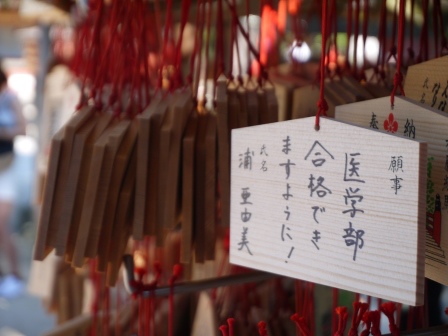 願事
医学部
合格でき
ますように!
氏名
浦 亜由美
奉
納
氏名